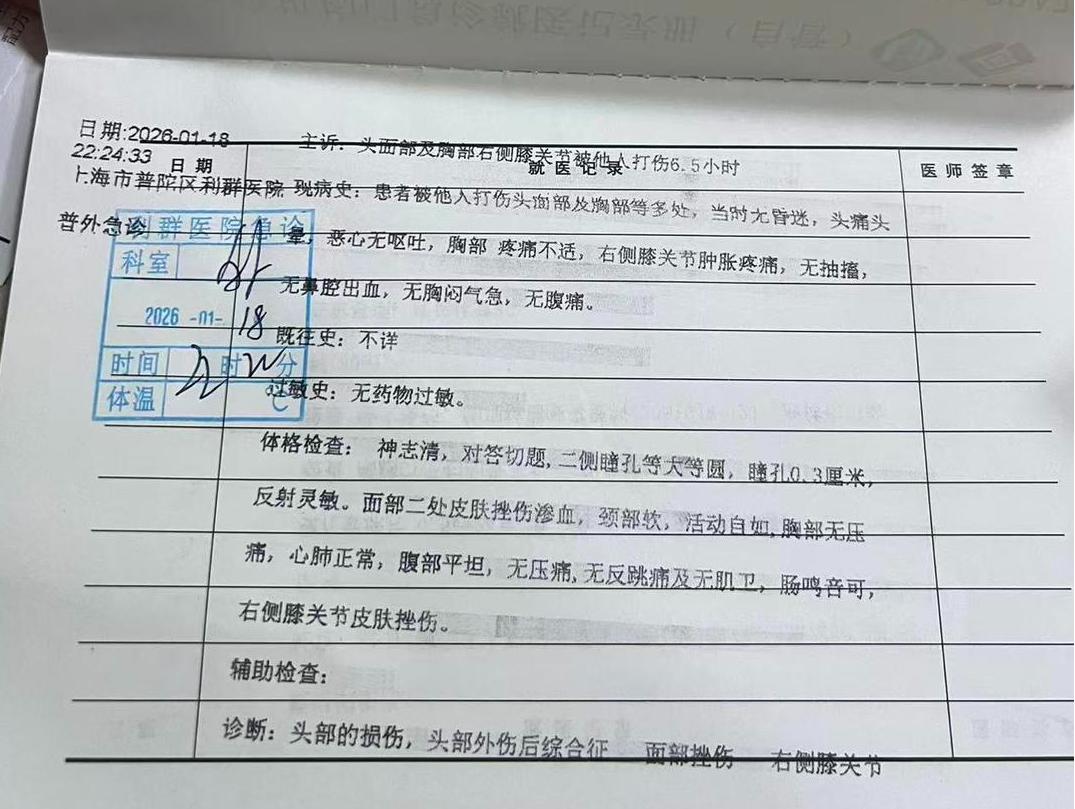 日期:2026-01-18
22:24:33
日期
就医记录
医师签章
主诉：头面部及胸部右侧膝关节被他人打伤6.5小时
上海市普陀区利群医院 现病史：患者被他人打伤头面部及胸部等多处，当时无昏迷，头痛头
普外急诊
晕，恶心无呕吐，胸部 疼痛不适，右侧膝关节肿胀疼痛，无抽搐，
无鼻腔出血，无胸闷气急，无腹痛。
利群医院急诊
科室
2026 -01- 18
时间 22 时 分
体温 ℃
既往史：不详
过敏史：无药物过敏。
体格检查： 神志清，对答切题,二侧瞳孔等大等圆，瞳孔0.3厘米，
反射灵敏。面部二处皮肤挫伤渗血，颈部软，活动自如,胸部无压
痛，心肺正常，腹部平坦，无压痛,无反跳痛及无肌卫，肠鸣音可，
右侧膝关节皮肤挫伤。
辅助检查：
诊断：头部的损伤，头部外伤后综合征 面部挫伤 右侧膝关节